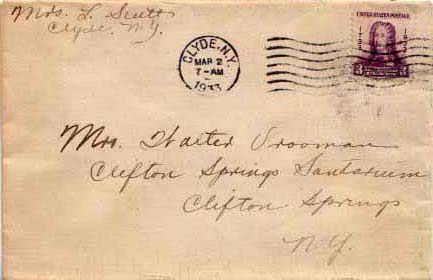 Mrs. L. Scutt
Clyde, N.Y.
CLYDE, N.Y.
MAR 2
7-AM
1933
UNITED STATES POSTAGE
1733
3
3
Mrs. Walter Vrooman
Clifton Springs Santarium
Clifton Springs
N.Y.